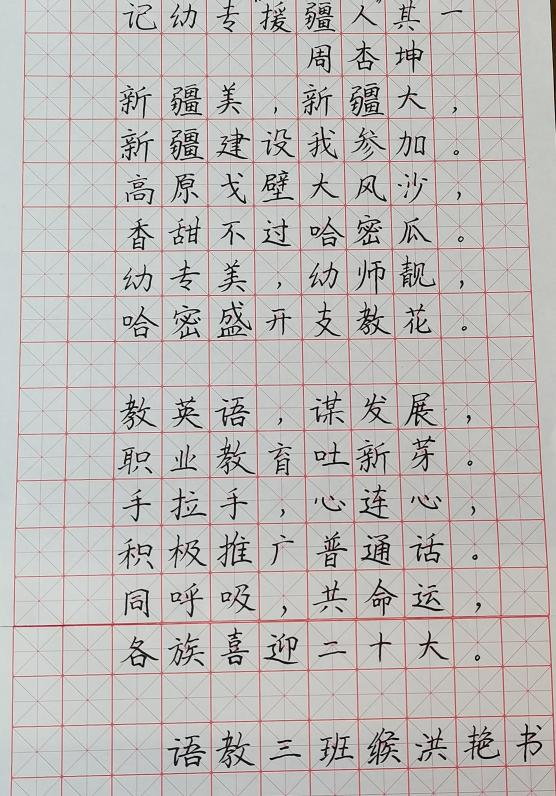 记幼专"援疆人"其一
周杏坤
新疆美，新疆大，
新疆建设我参加。
高原戈壁大风沙，
香甜不过哈密瓜。
幼专美，幼师靓，
哈密盛开支教花。
教英语，谋发展，
职业教育吐新芽。
手拉手，心连心，
积极推广普通话。
同呼吸，共命运，
各族喜迎二十大。
语教三班缑洪艳书